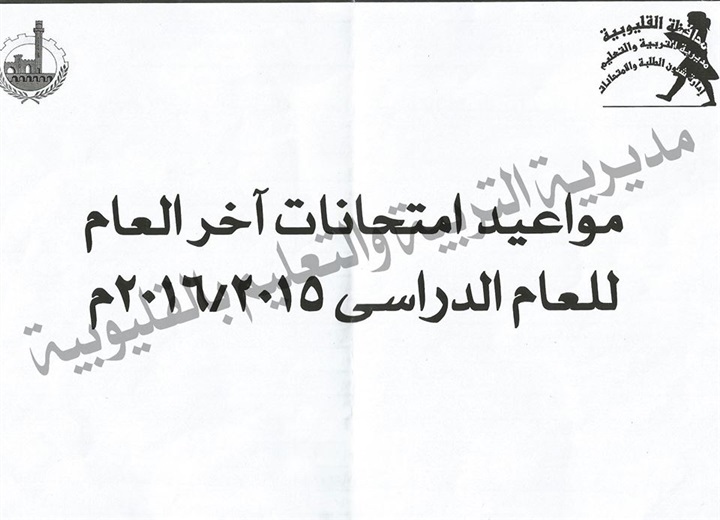 محافظة القليوبية
مديرية التربية والتعليم
إدارة شئون الطلبة والامتحانات
مواعيد امتحانات آخر العام
للعام الدراسى ٢٠١٦/٢٠١٥م
مديرية التربية والتعليم بالقليوبية